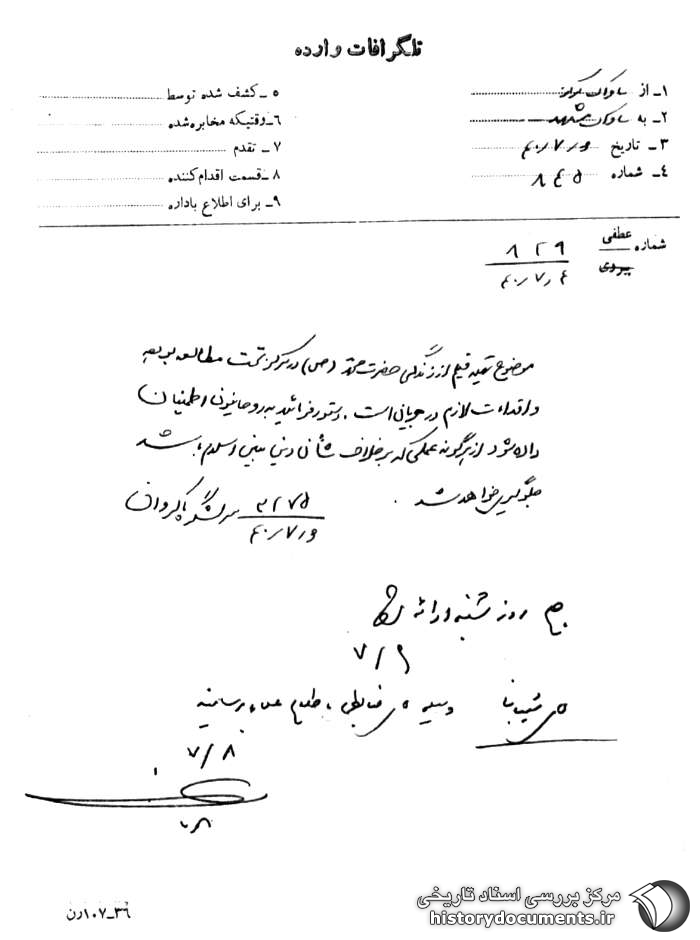 تلگرافات وارده
۱ـ از ساواک مرکز
۲ـ به ساواک مشهد
۳ ـ تاریخ ۴۰/۷/۶
۴ـ شماره ۸۴۵
۵ ـ کشف شده توسط
۶ـ وقتیکه مخابره شده
۷ ـ تقدم
۸ ـ قسمت اقدام کننده
۹ـ برای اطلاع باداره
شماره عطفی ۸۲۹
پیروی ۴۰/۷/۴
موضوع تهیه فیلم از زندگی حضرت محمد (ص) در مرکز تحت مطالعه بوده
و اقدامات لازم در جریان است. دستور فرمائید به روحانیون اطمینان
داده شود از هرگونه عملی که برخلاف شأن دین مبین اسلام باشد
جلوگیری خواهد شد.
سرلشگر پاکروان ۳۲۷۵
۴۰/۷/۶
روز شنبه ارائه
۷/۶
وسیله ضابطی باطلاع علماء برسانید
۷/۸
۳۶ـ۱۰۷رن
مرکز بررسی اسناد تاریخی
historydocuments.ir